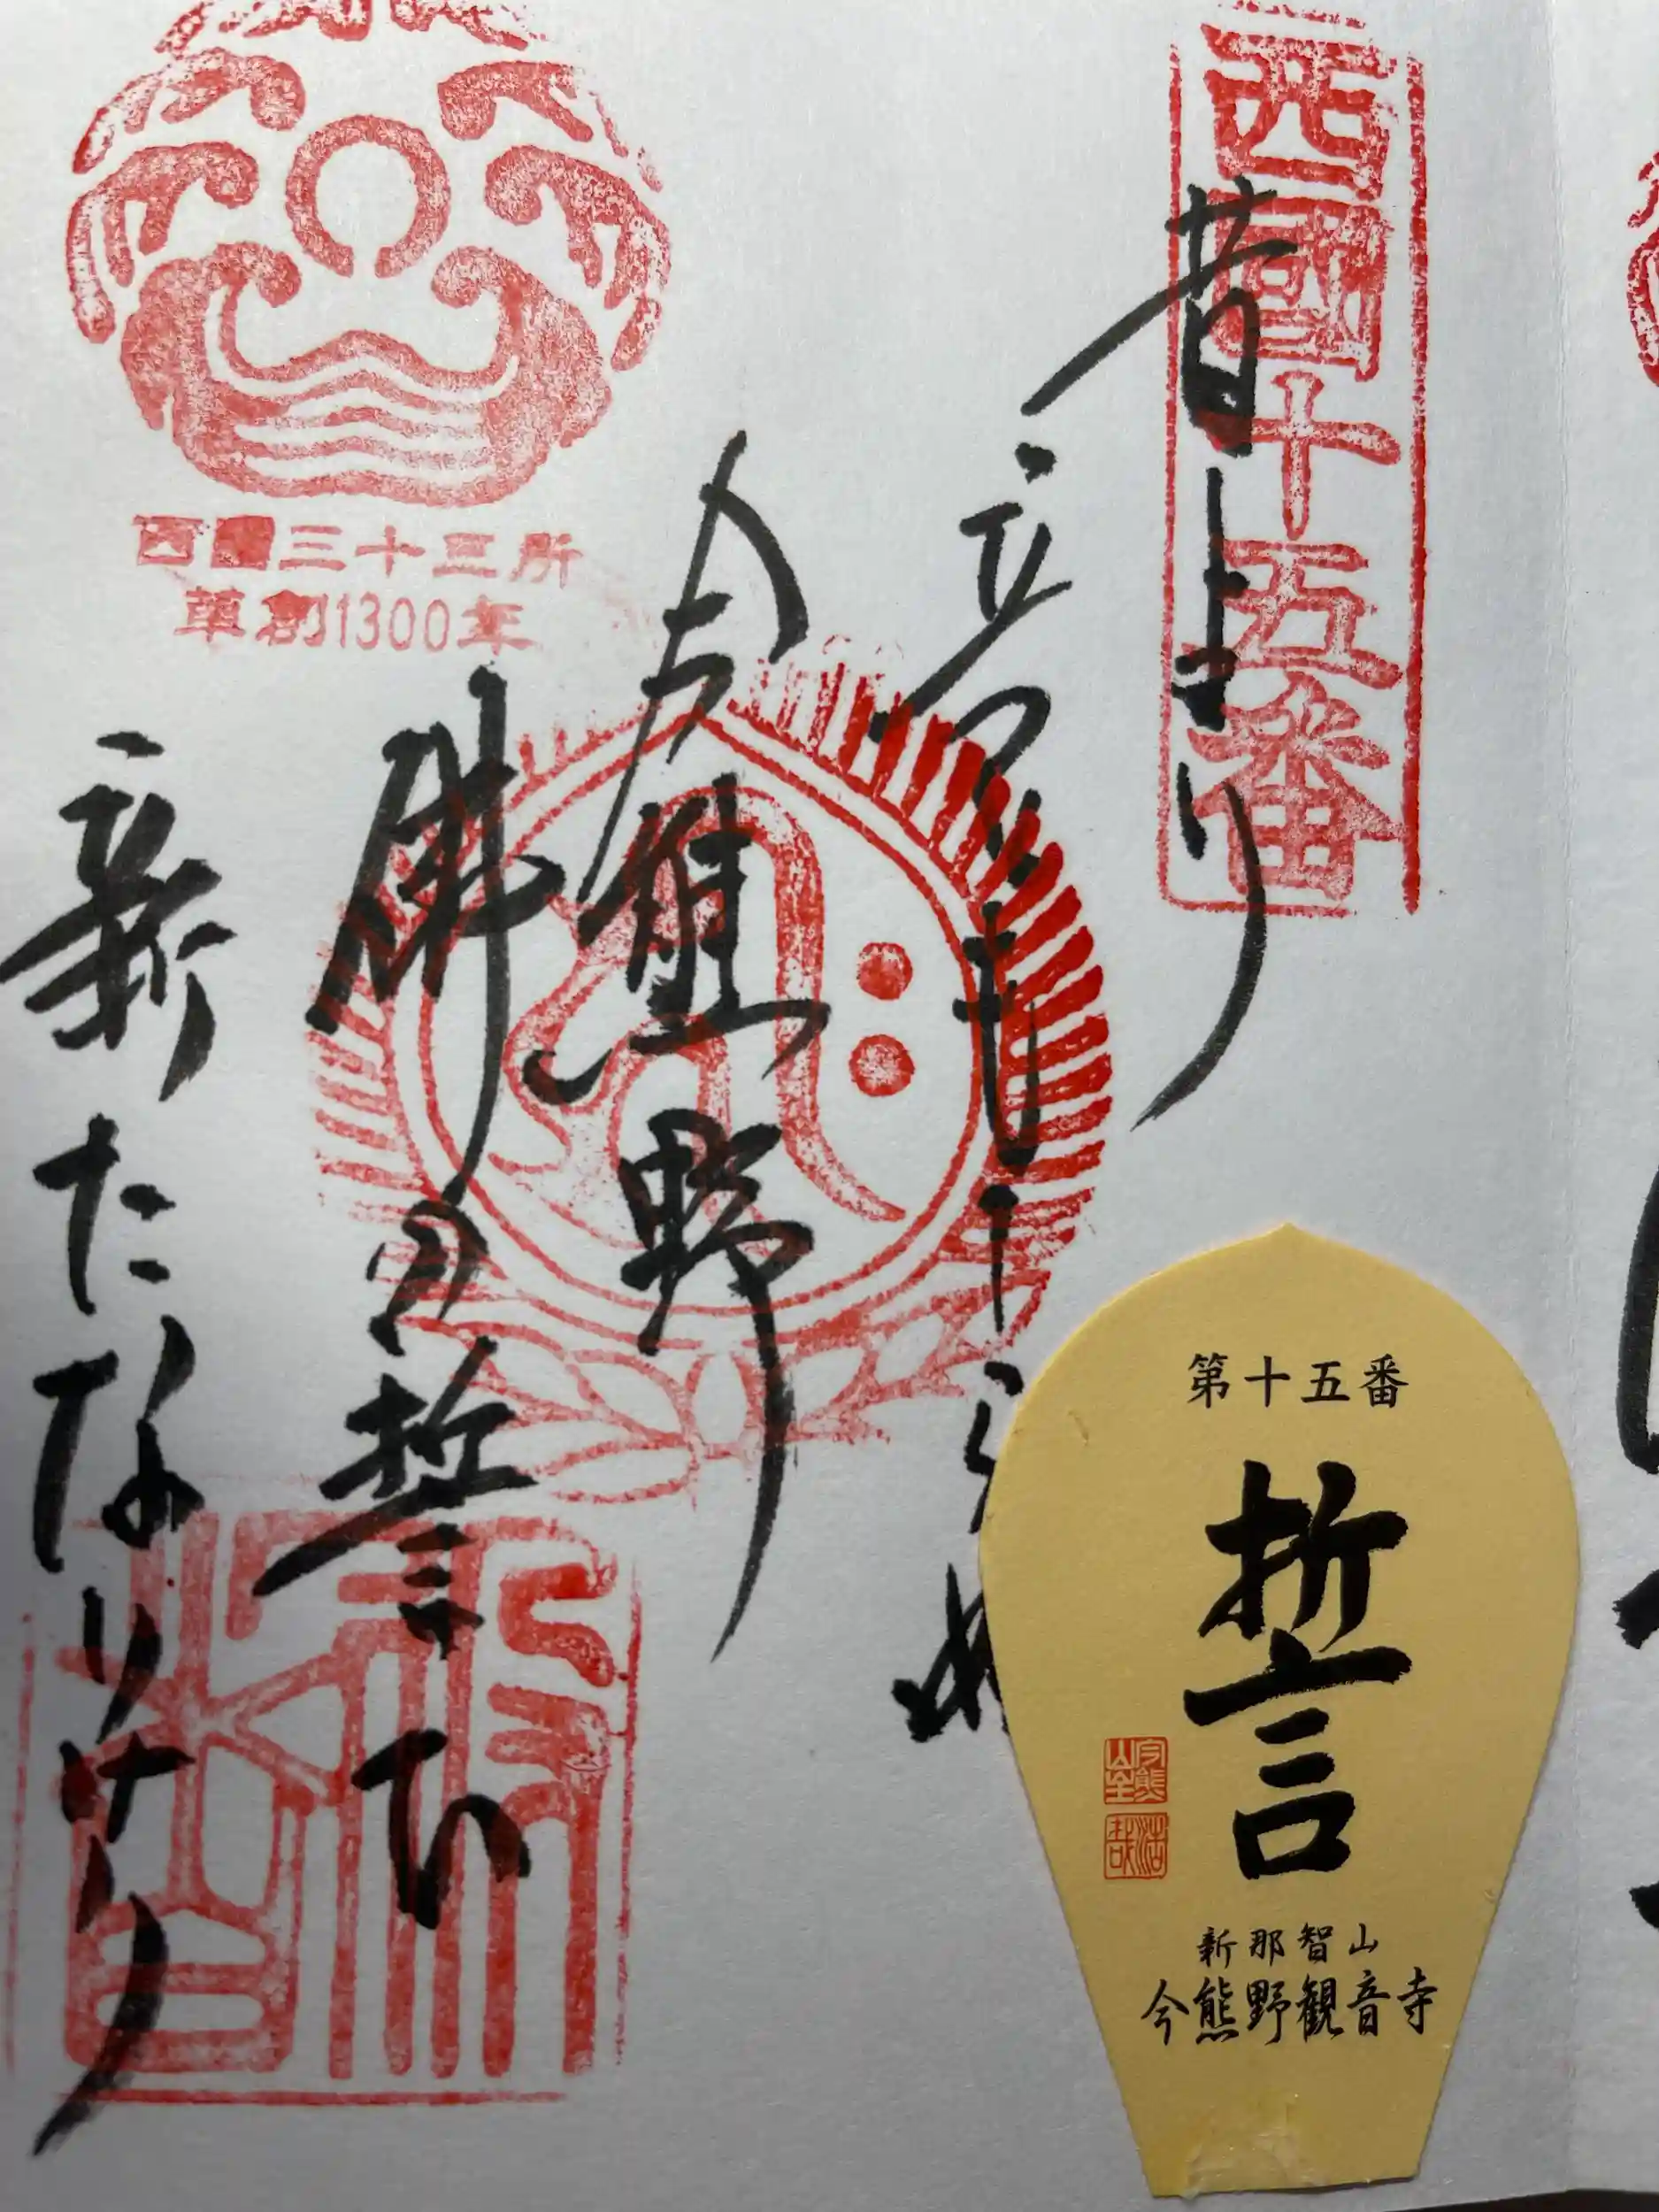 西國十五番
昔より
立つともしらぬ
今熊野
佛の誓ひ
新たなりけり
西國三十三所
草創1300年
第十五番
誓
今熊山主
浩哉
新那智山
今熊野観音寺